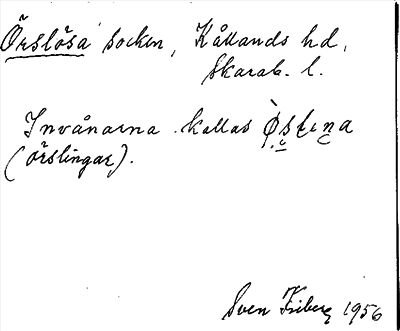 Örslösa socken, Kållands hd,
Skarab. l.
Invånarna kallas
(örslingar).
Sven Friberg 1956